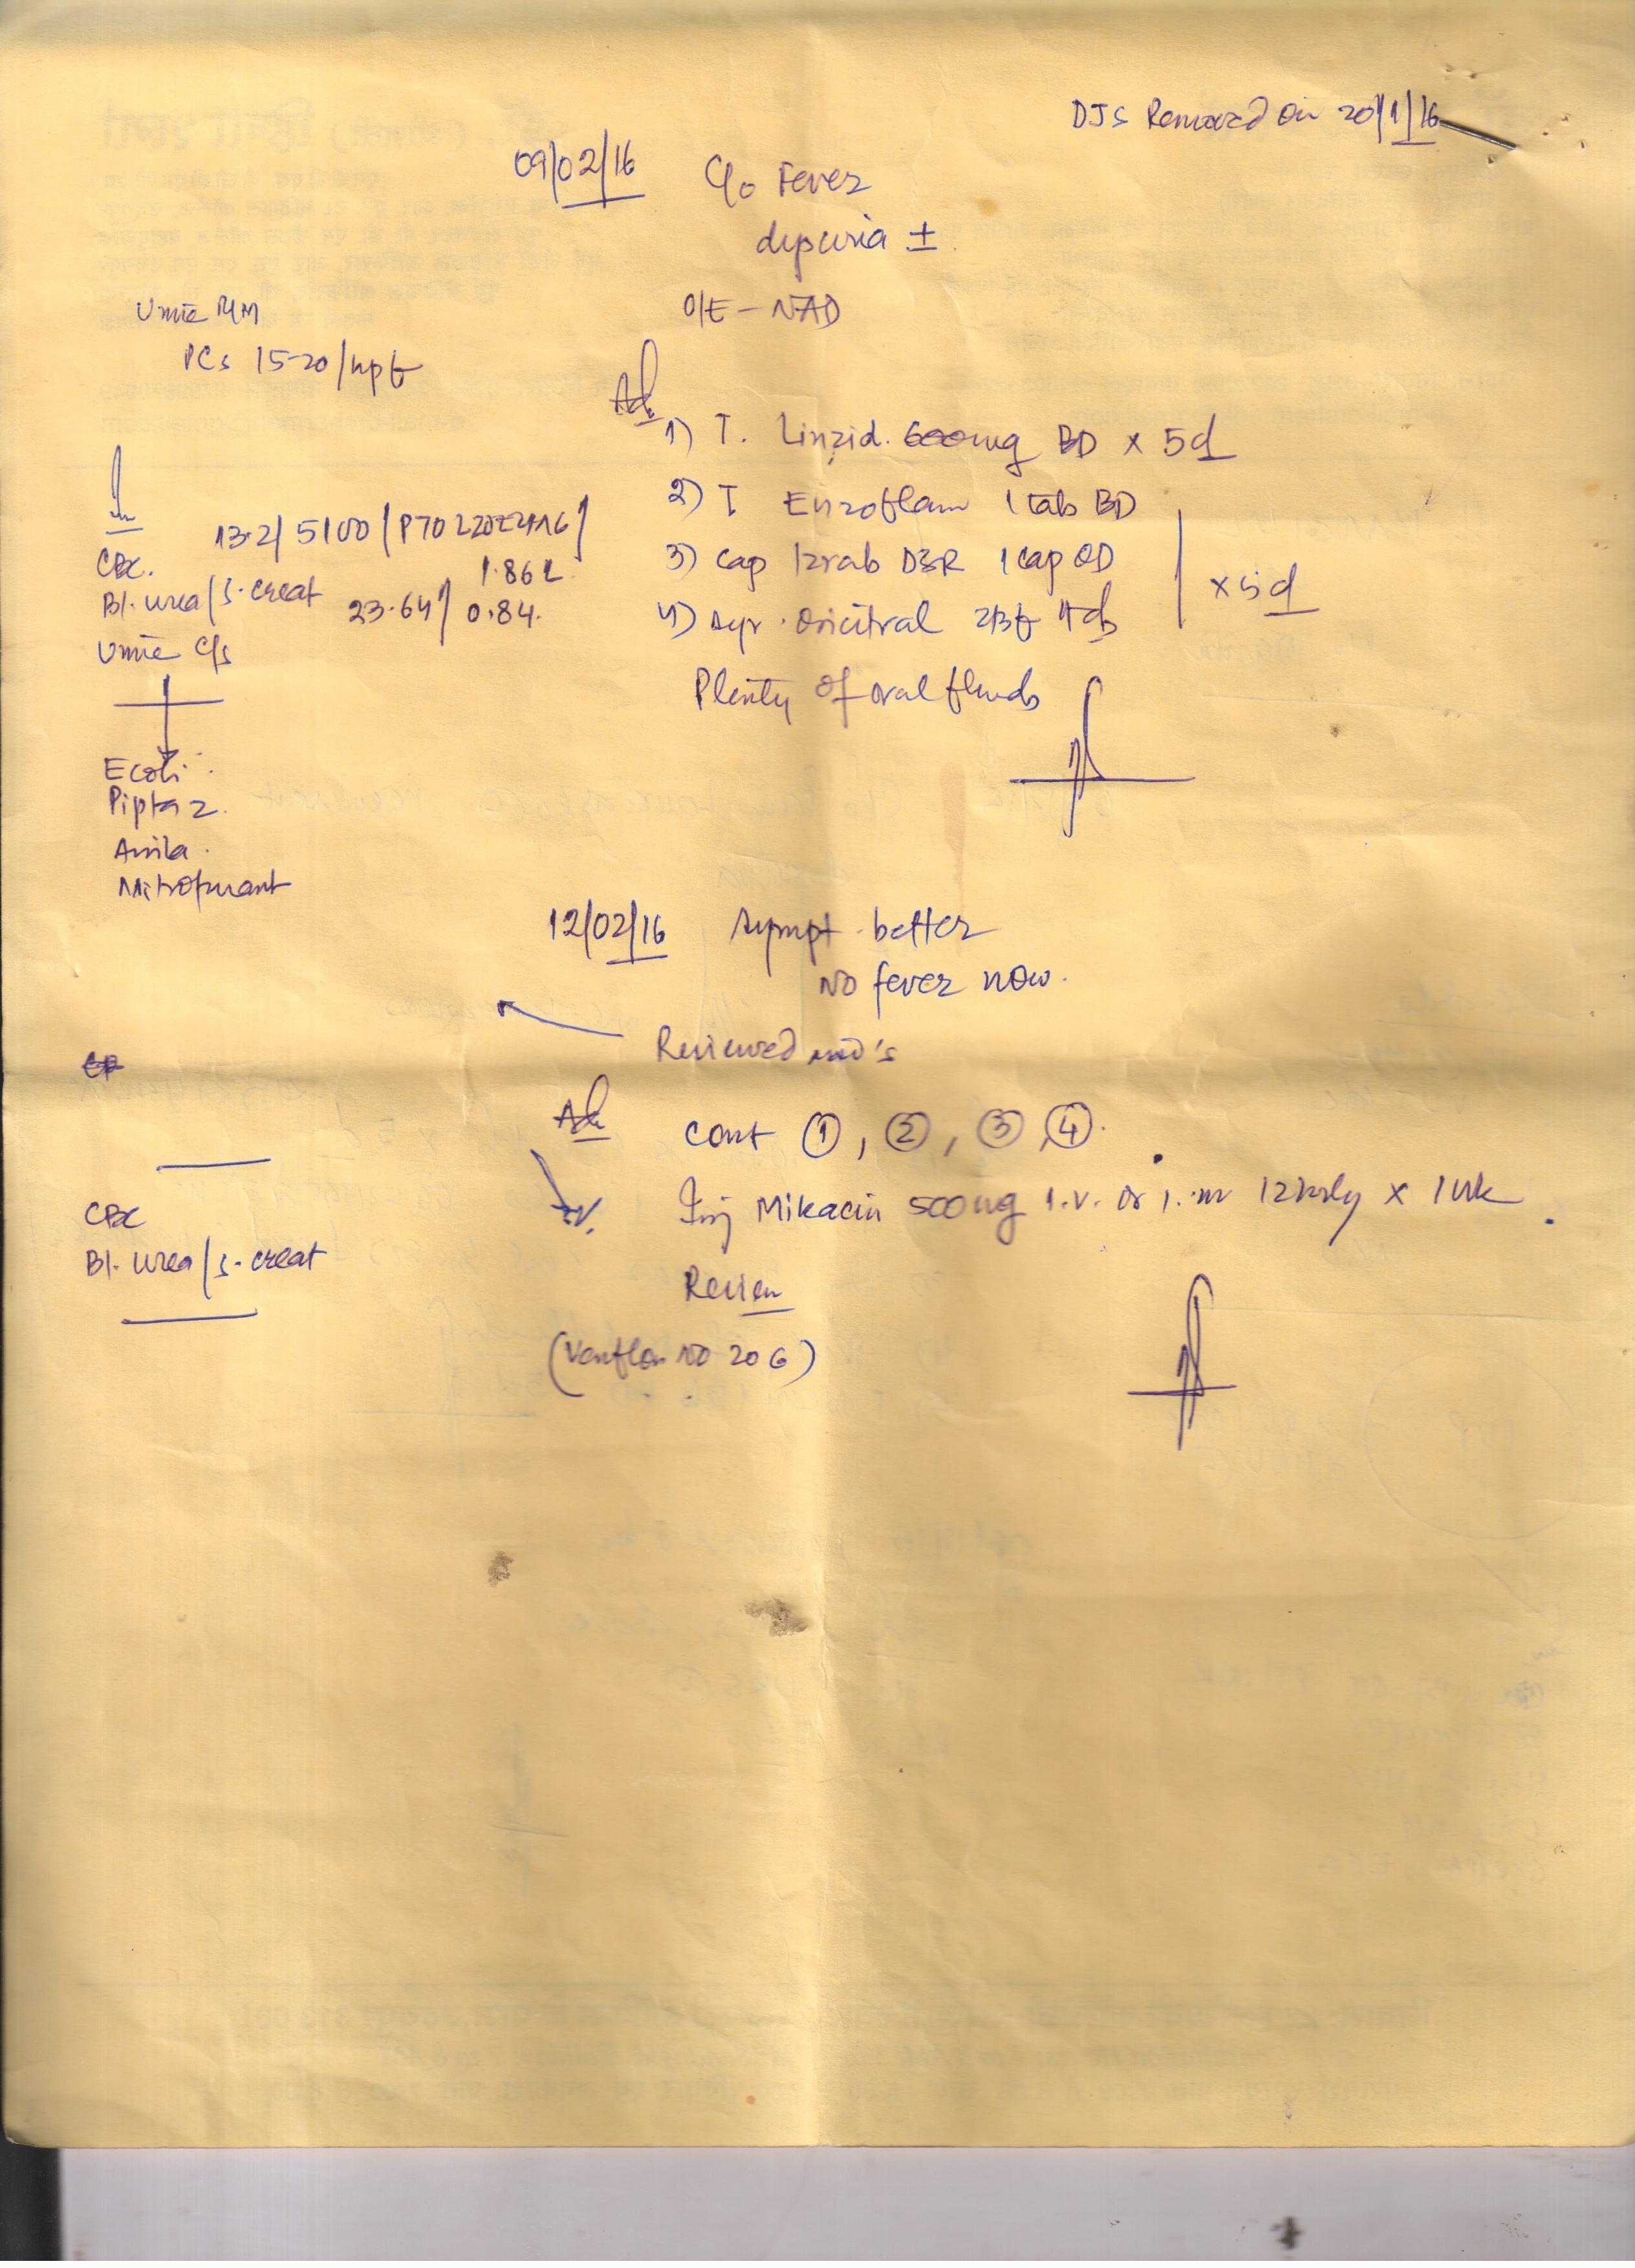 DJS Removed on 20/1/16
09/02/16 C/o Fever
dysuria ±
O/E - NAD
Urine R/M
PCs 15-20/hpf
Adv
1) T. Linzid. 600mg BD x 5d
2) T Enzoflam 1 tab BD
3) Cap Izrab DSR 1 cap OD
4) Syr. Oricitral 2tsf tds
x 5d
Plenty of oral fluids
13.2/ 5100 / P70 L20E4M6/
CBC. 1.86L
Bl. urea/S. creat 23.64/ 0.84.
Urine C/s
Ecoli
Piptaz.
Amika.
Nitrofurant
12/02/16 Sympt. better
No fever now.
Reviewed
Adv
cont ①, ②, ③, ④.
Inj Mikacin 500mg i.v. or i.m 12hrly x 1wk.
CBC
Bl. urea/S. creat
Review
(Venflon No 20 G)